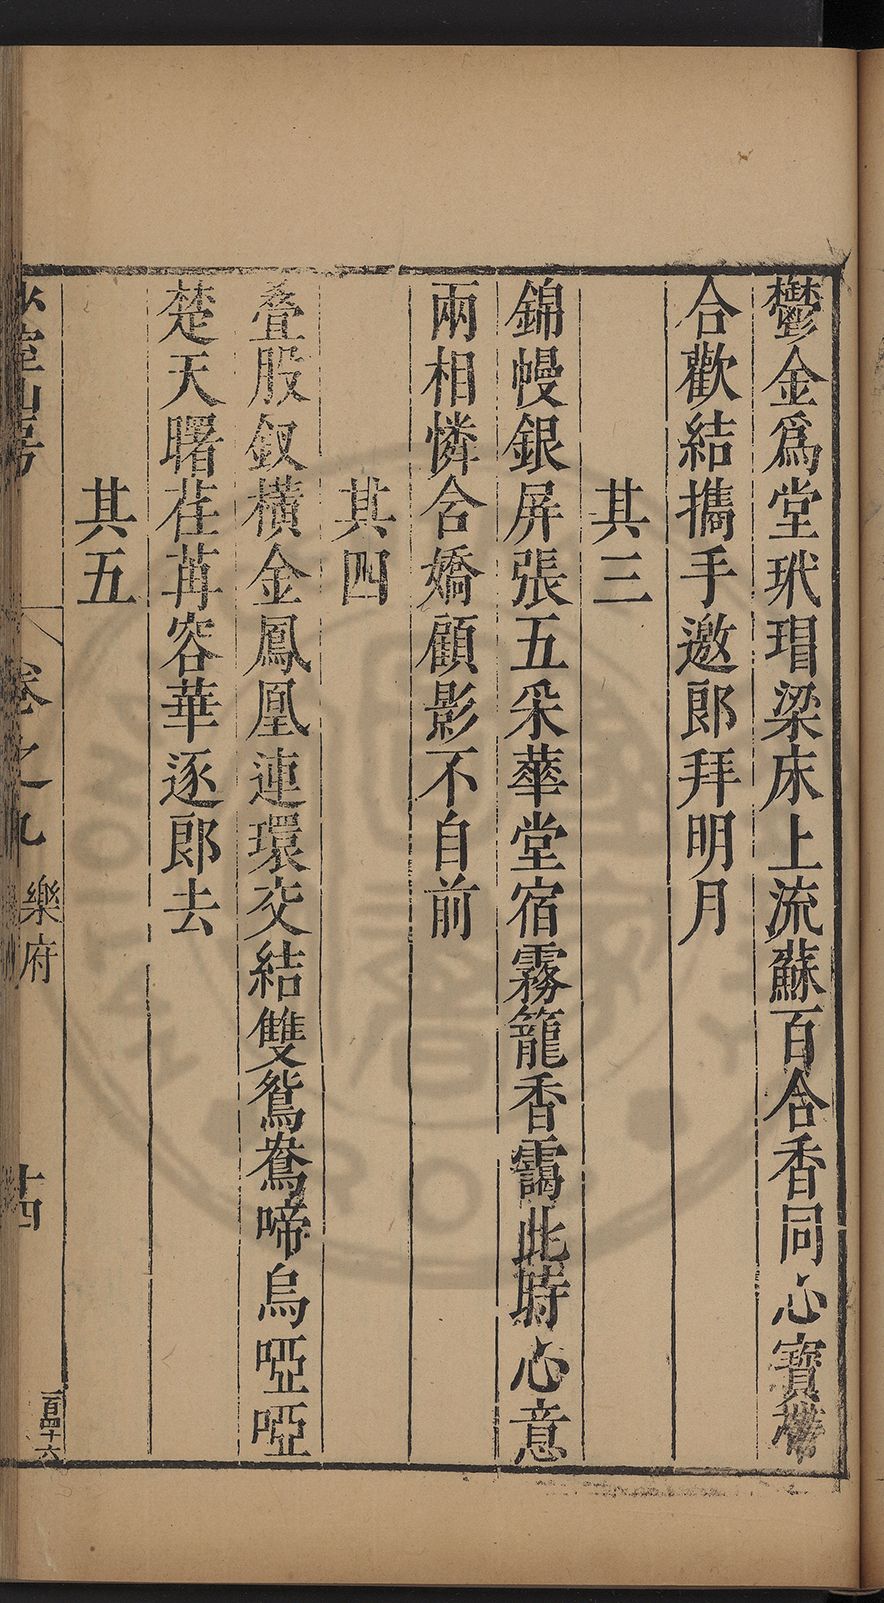 鬱金爲堂玳瑁梁床上流蘇百合香同心寶帶
合歡結攜手邀郎拜明月
其三
錦幔銀屏張五采華堂宿霧籠香靄此時心意
兩相憐含嬌顧影不自前
其四
叠股釵橫金鳳凰連環交結雙鴛鴦啼烏啞啞
楚天曙荏苒容華逐郎去
其五
少室山房
卷之九 樂府
十四
一百四十六